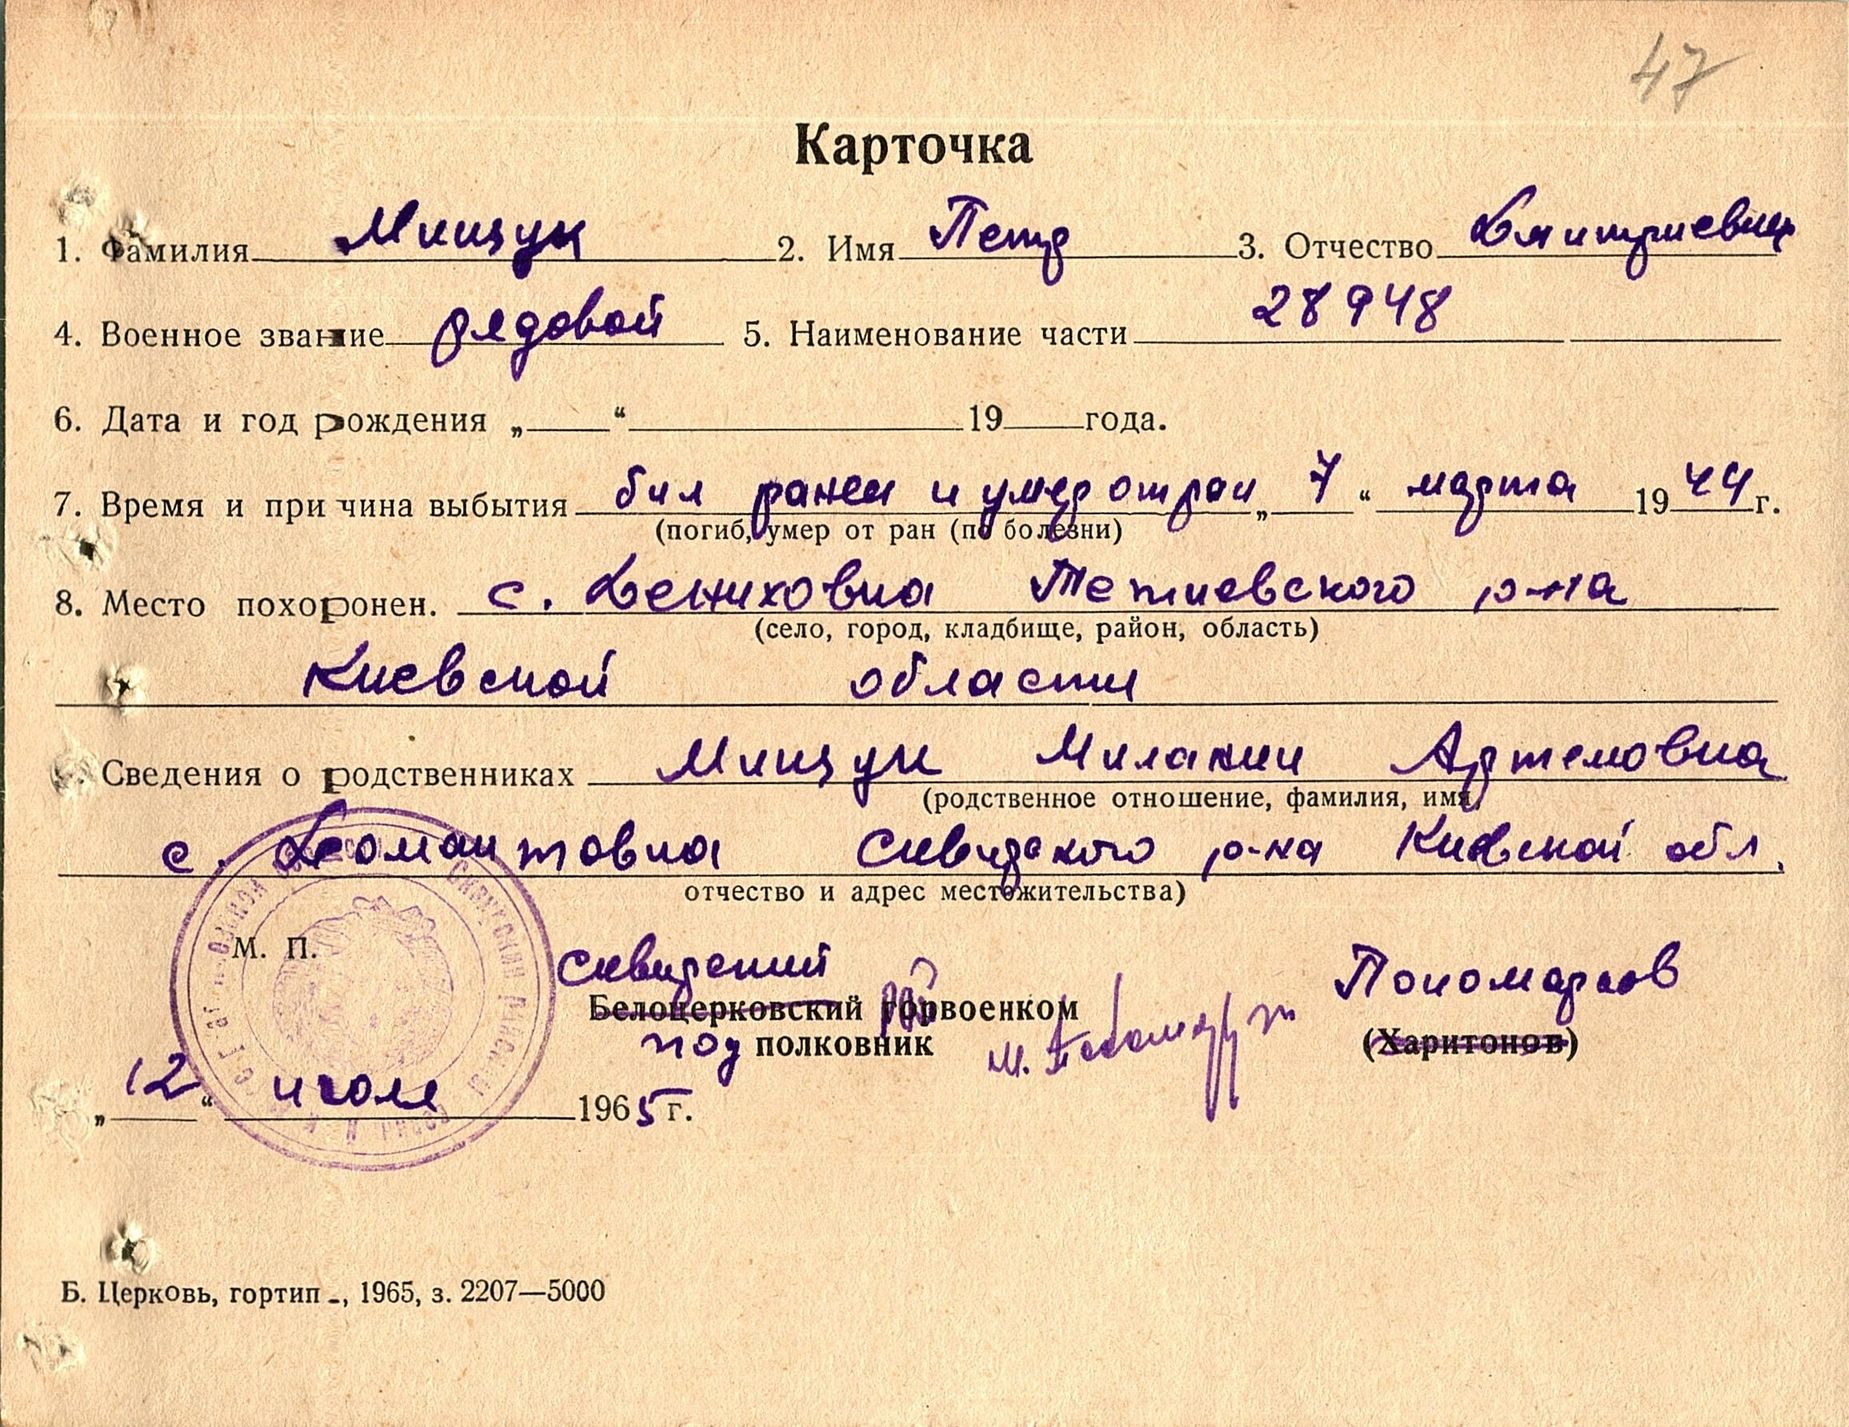 47
Карточка
1. Фамилия Мищук 2. Имя Петр 3. Отчество Дмитриевич
4. Военное звание рядовой 5. Наименование части 28948
6. Дата и год рождения „ “ 19 года.
7. Время и причина выбытия бил ранен и умер от ран „ 7 “ марта 1944 г.
(погиб, умер от ран (по болезни)
8. Место похоронен. с. Дениховка Тетиевского р-на
(село, город, кладбище, район, область)
Киевской области
Сведения о родственниках Мищук Милании Артемовна
(родственное отношение, фамилия, имя,
с. Домантовка Сквирского р-на Киевской обл.
отчество и адрес местожительства)
М. П.
Сквирский Пономарьов
Белоцерковский горвоенком
подполковник (Харитонов)
„ 12 “ июля 1965 г.
Б. Церковь, гортип., 1965, з. 2207—5000